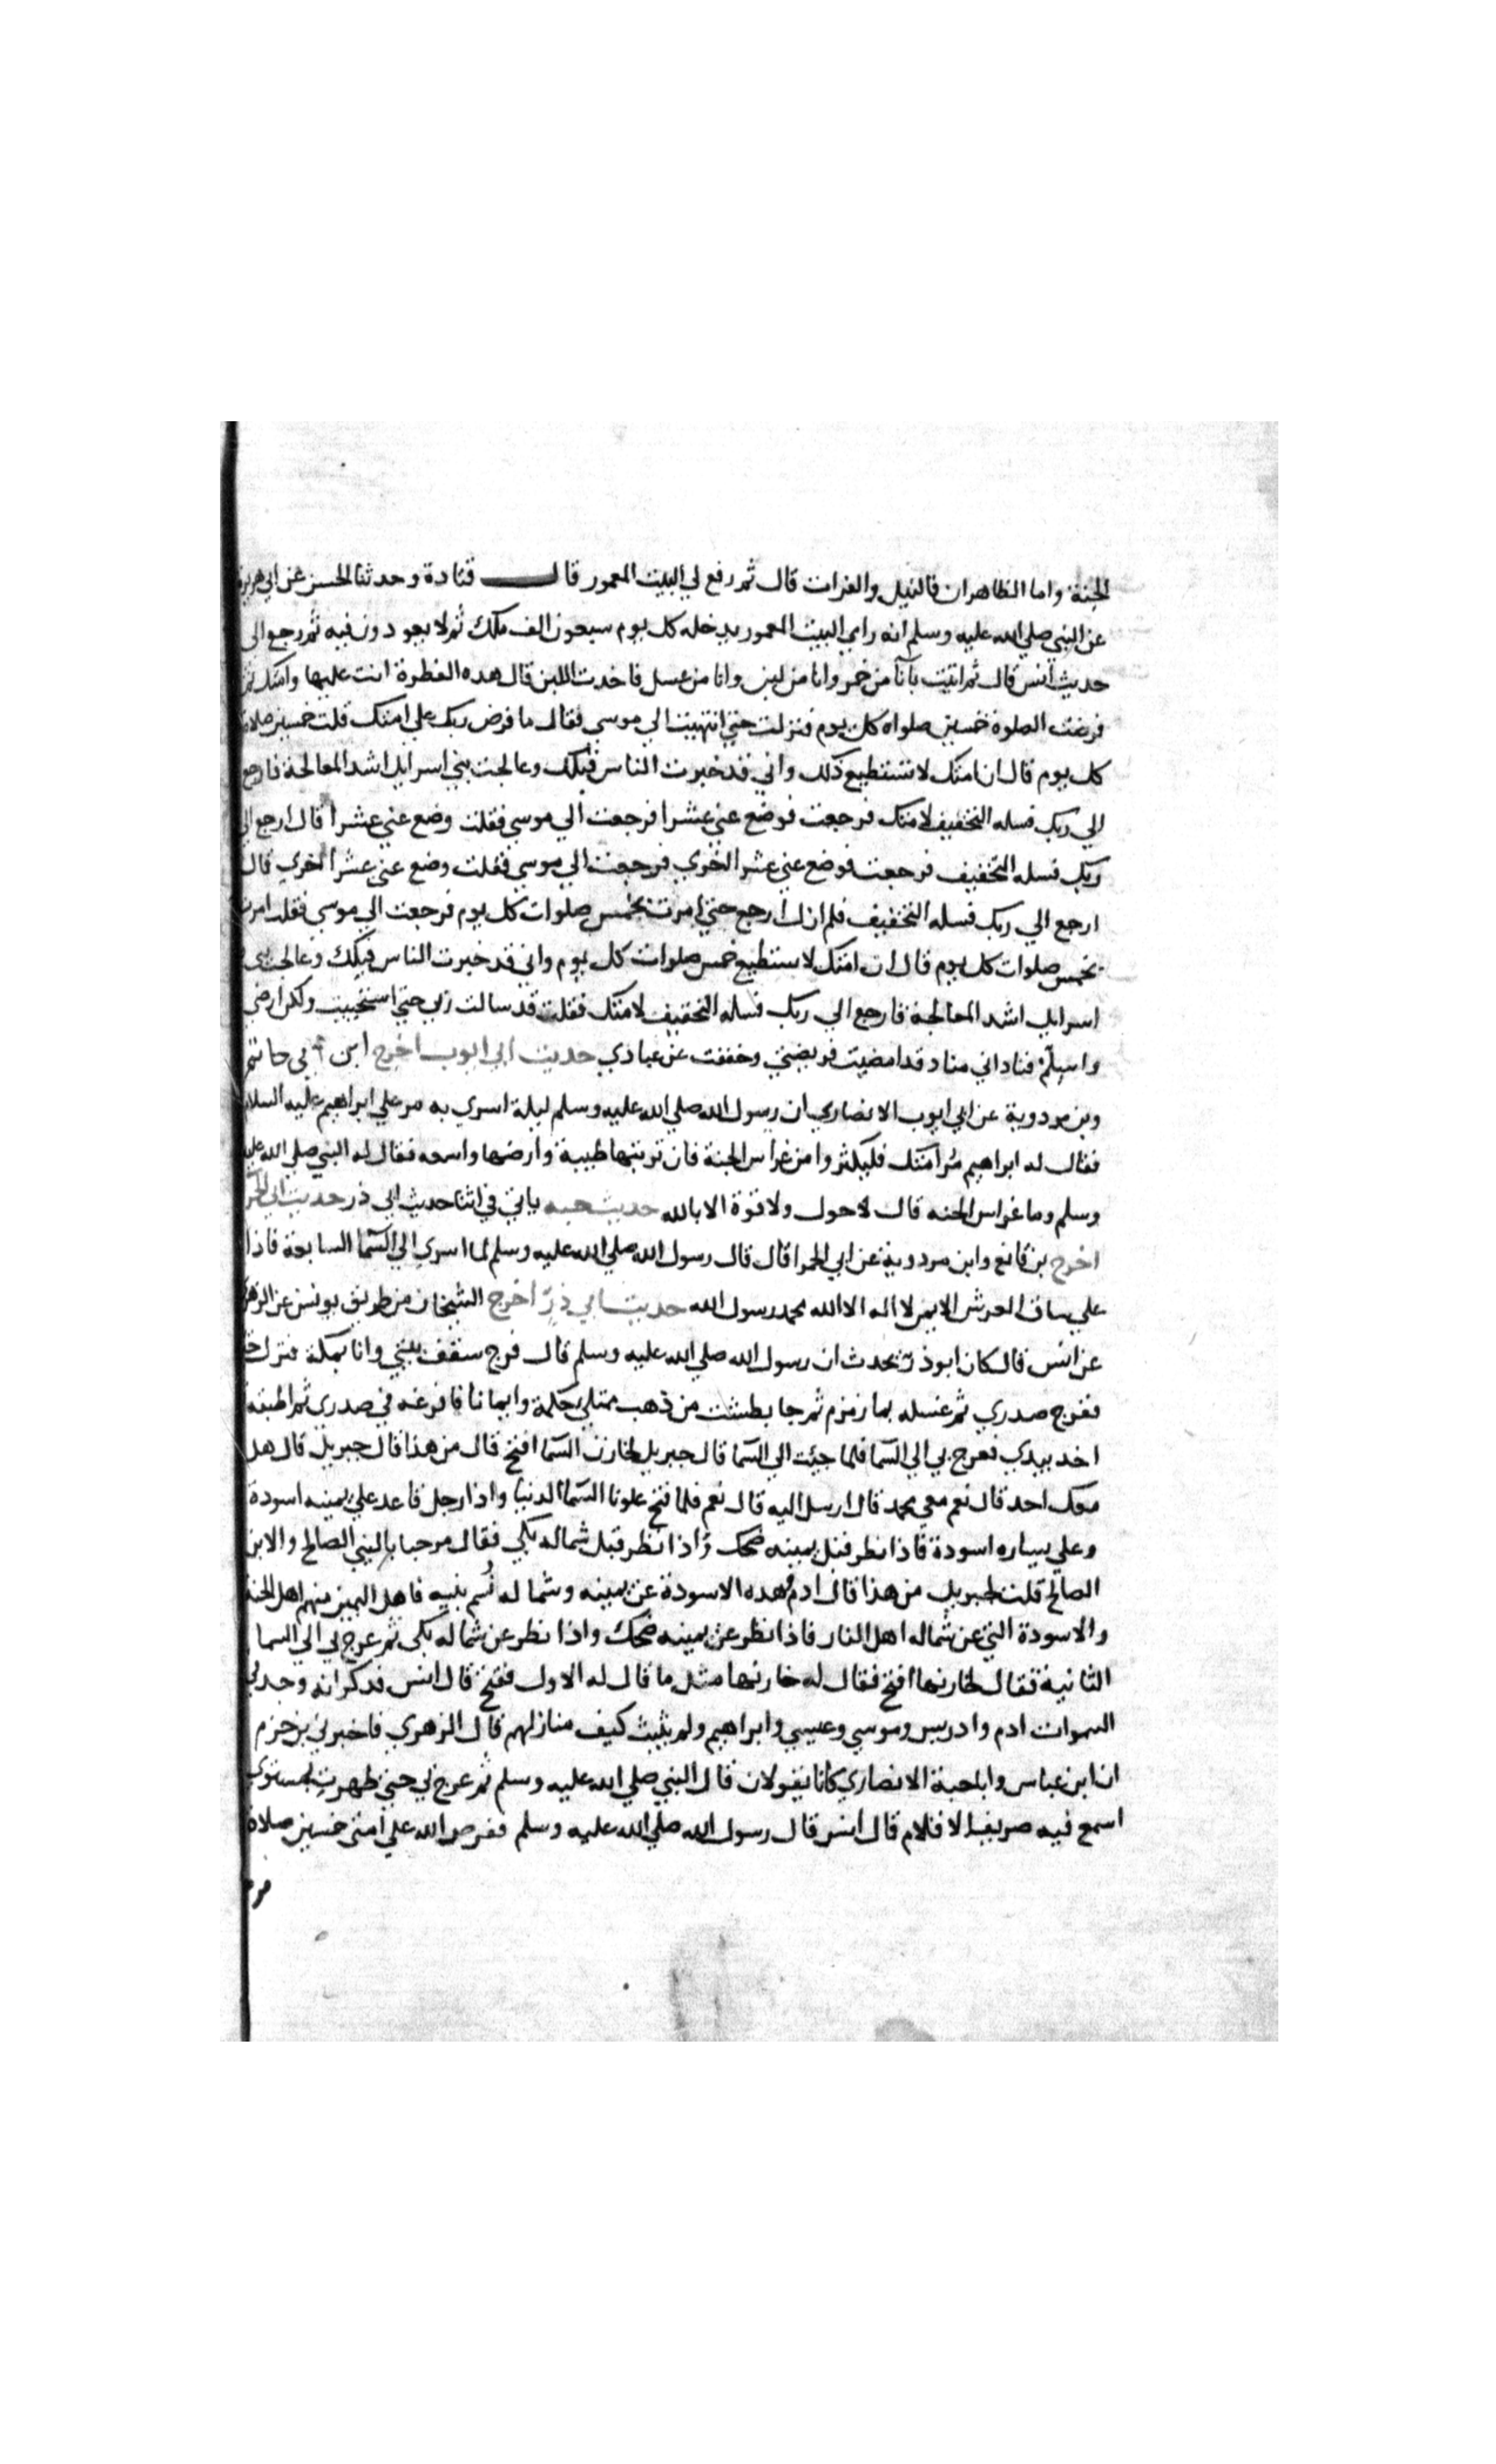 الجنة واما الظاهران فالنيل والفرات قال ثم رفع لي البيت المعمور قال قتادة وحدثنا الحسن عن ابي هريرة
عن النبي صلي الله عليه وسلم انه راي البيت المعمور يدخله كل يوم سبعون الف ملك ثم لا يعودون فيه ثم رجع الى
حديث انس قال ثم اتيت بآنآ من خمر وانا من لبن وانا من عسل فاخدت اللبن قال هده الفطرة انت عليها وامتك ثم
فرضت الصلوة خمسين صلواه كل يوم فنزلت حتي انتهيت الى موسي فقال ما فرض ربك علي امتك قلت خمسين صلاة
كل يوم قال ان امتك لا تستطيع ذلك واني قد خبرت الناس قبلك وعالجت بني اسرايل اشد المعالجة فارجع
الي ربك فسله التخفيف لامتك فرجعت فوضع عني عشرا فرجعت الي موسي فقلت وضع عني عشرا قال ارجع الي
ربك فسله التخفيف فرجعت فوضع عني عشرا اخري فرجعت الي موسي فقلت وضع عني عشرا اخري قال
ارجع الي ربك فسله التخفيف فلم ازل ارجع حتي امرت بخمس صلوات كل يوم فرجعت الي موسي فقلت امرت
بخمس صلوات كل يوم قال ان امتك لا ستطيع خمس صلوات كل يوم واني قد خبرت الناس قبلك وعالجت بني
اسرايل اشد المعالجة فارجع الي ربك فسله التخفيف لامتك فقلت قد سالت ربي حتي استحييت ولكن ارضي
واسلم فناداني مناد قد امضيت فريضتي وخففت عن عبادي حديث ابي ايوب اخرج ابن ابي حاتم
وبن مردوية عن ابي ايوب الانصاري ان رسول الله صلي الله عليه وسلم ليلة اسري به مر علي ابراهيم عليه السلام
فقال له ابراهيم مُر امتك فليكثروا من غراس الجنة فان تربتها طيبة وارضها واسعه فقال له النبي صلي الله عليه
وسلم وما غراس الجنه قال لا حول ولا قوة الا بالله حديث حبه ياتي في اثنا حديث ابي ذر حديث ابي الحمرا
اخرج بن قانع وابن مردوية عن ابي الحمرا قال قال رسول الله صلي الله عليه وسلم لما اسري الي السما السابعة فاذا
علي ساق العرش الايمن لا اله الا الله محمد رسول الله حديث ابي ذر اخرج الشيخان من طريق يونس عن الزهري
عن انس قال كان ابو ذر يحدث ان رسول الله صلي الله عليه وسلم قال فرج سقف بيتي وانا بمكة فنزل
ففرج صدري ثم غسله بما زمزم ثم جا بطشت من ذهب ممتلئ حكمة وايمانا فافرغه في صدري ثم اطبقه
اخد بيدي فعرج بي الي السما فلما جيئت الي السما قال جبريل لخازن السما افتح قال من هذا قال جبريل قال هل
معك احد قال نعم معي محمد قال ارسل اليه قال نعم فلما فتح علونا السما الدنيا واذا رجل قاعد علي يمينه اسودة
وعلي يساره اسودة فاذا نظر قبل يمينه ضحك واذا نظر قبل شماله بكي فقال مرحبا بالنبي الصالح والابن
الصالح قلت لجبريل من هذا قال ادم وهده الاسودة عن يمينه وشماله نُسم بنيه فاهل اليمين منهم اهل الجنة
والاسودة التي عن شماله اهل النار فاذا نظر عن يمينه ضحك واذا نظر عن شماله بكي ثم عرج بي الي السما
الثانية فقال لخازنها افتح فقال له خازنها مثل ما قال له الاول ففتح قال انس فدكر انه وجد في
السموات ادم وادريس وموسي وعيسي وابراهيم ولم يثبت كيف منازلهم قال الزهري فاخبرني بن حزم
ان ابن عباس وابا حبة الانصاري كانا يقولان قال النبي صلي الله عليه وسلم ثم عرج بي حتي ظهرت لمستوي
اسمع فيه صريف الاقلام قال انس قال رسول الله صلي الله عليه وسلم ففرض الله علي امتي خمسين صلاة